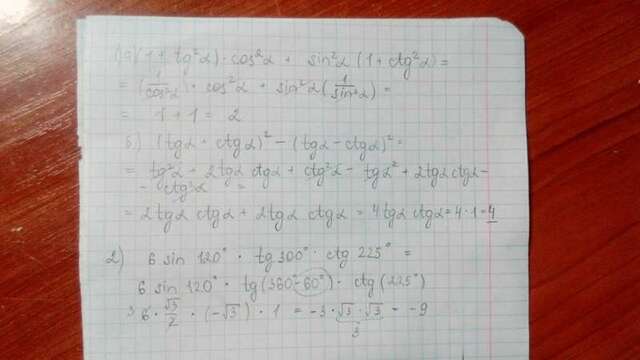 1) а) (1 + tg²α) · cos²α + sin²α (1 + ctg²α) =
= (1/cos²α) · cos²α + sin²α (1/sin²α) =
= 1 + 1 = 2
б) (tgα + ctgα)² − (tgα − ctgα)² =
= tg²α + 2tgα ctgα + ctg²α − tgα² + 2tgα ctgα −
− ctg²α =
= 2tgα ctgα + 2tgα ctgα = 4tgα ctgα = 4·1 = 4
2) 6 sin 120° · tg 300° · ctg 225° =
6 sin 120° · tg (360° − 60°) · ctg (225°)
3 6 · √3/2 · (−√3) · 1 = −3 · √3 · √3 = −9
3